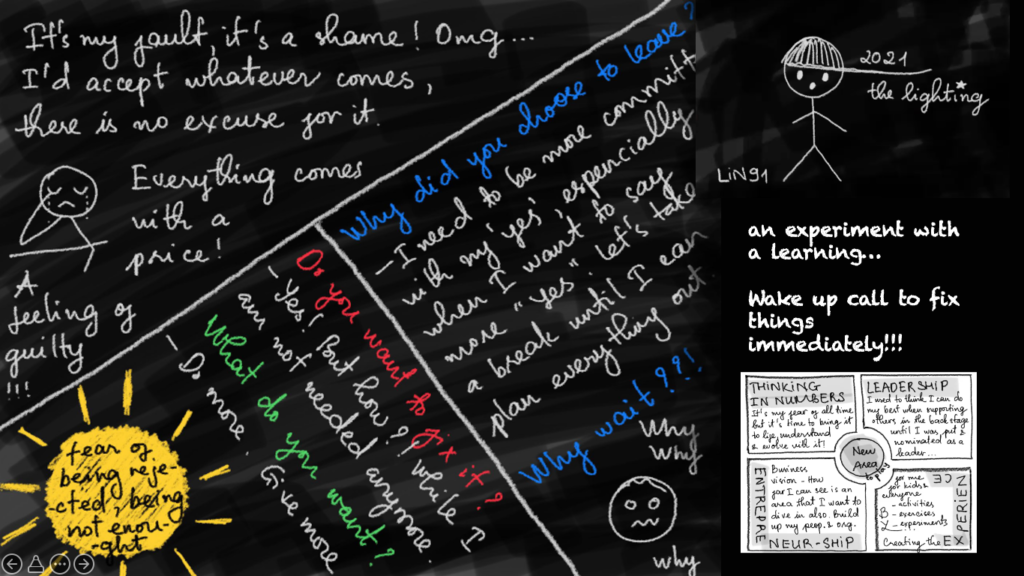 It's my fault, it's a shame! Omg...
I'd accept whatever comes,
there is no excuse for it.
Everything comes
with a
price!
A
feeling of
guilty
!!!
fear of
being reje-
-cted, being
not enou-
-ght
Why did you choose to leave?
- I need to be more committ
with my 'yes', espencially
when I want to say
more "yes" let's take
a break until I can
plan everything out.
Why wait??!
Why
Why
why
Do you want to fix it?
- Yes! But how?? while I
am not needed anymore.
What do you want?
- Do more. Give more
2021
the lighting
LiN91
an experiment with
a learning...
Wake up call to fix
things
immediately!!!
THINKING
IN NUMBERS
It's my year of all time
but it's time to bring it
to life, understand
& evolve with it!
LEADERSHIP
I need to think I can do
my best when supporting
others in the back stage
until I was put &
nominated as a
leader...
New
Area
ENTREPRE
NEUR-SHIP
Business
vision - How
far I can see is an
area that I want to
dive in also. Build
up my peop. & org.
EXPERIENCE
for me
for kids &
everyone
- activities
- exercises
- experiments
Creating the